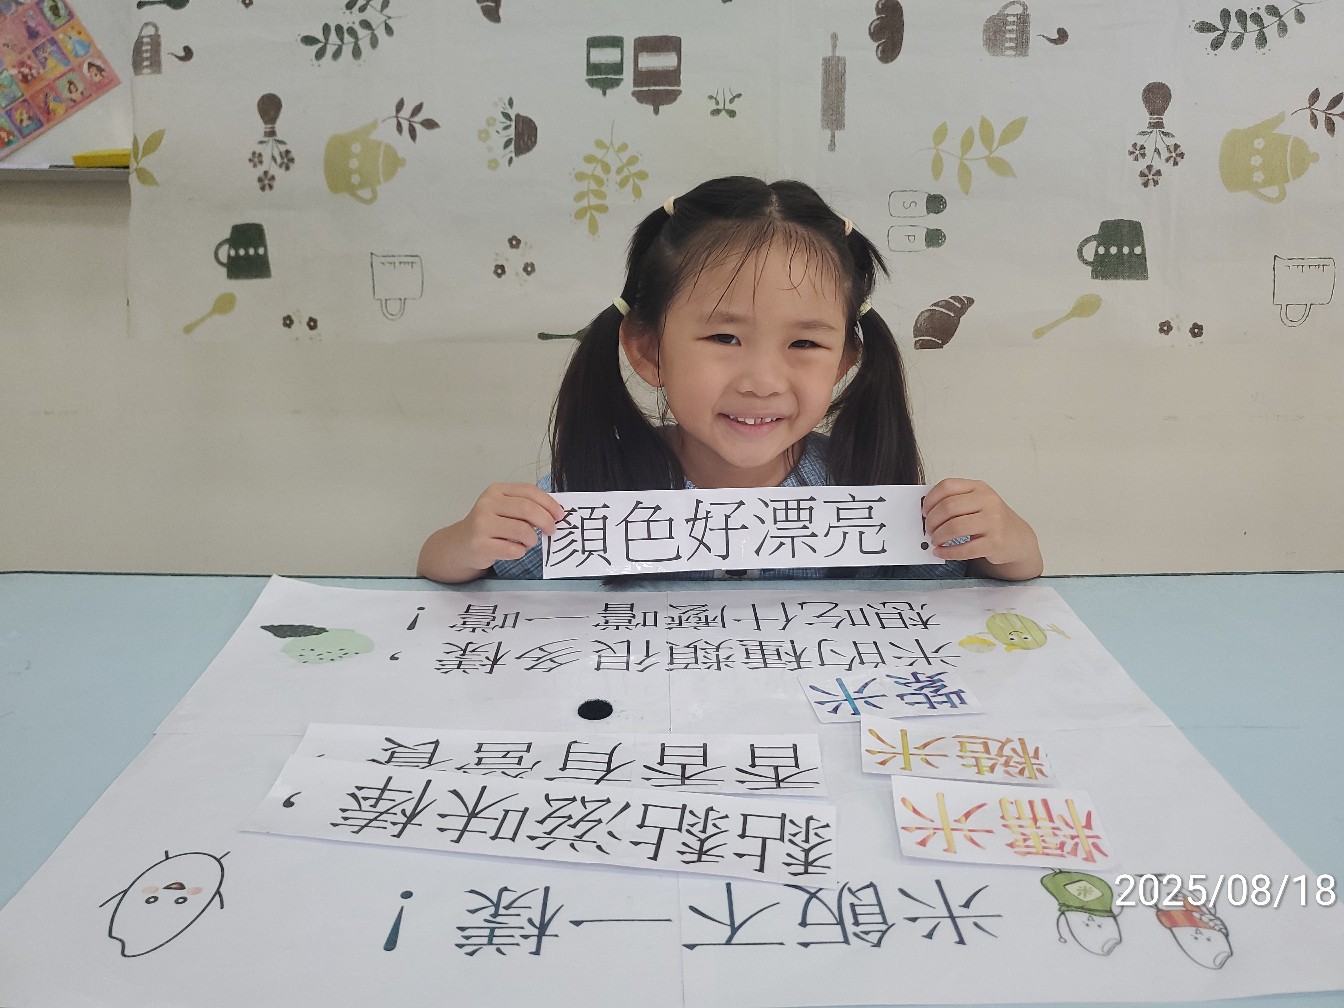 S
P
顏色好漂亮！
米飯不一樣！
糯米
黏黏滋味棒，
糙米
香香有營養，
紫米
米的種類很多樣，
想吃什麼嚐一嚐！
米
2025/08/18